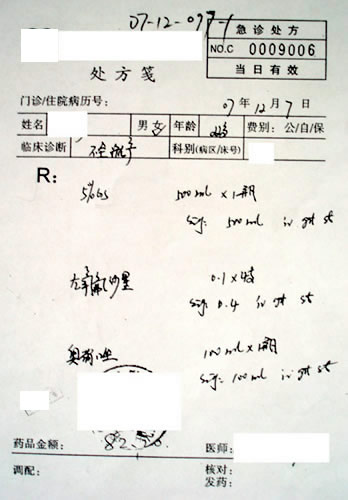 07-12-07
急诊处方
NO.C 0009006
当日有效
处方笺
门诊/住院病历号：
07年12月7日
姓名 男 女 年龄 费别：公/自/保
临床诊断 科别(病区/床号)
R:
5%GS 500ml x 1瓶
Sig: 500ml iv gtt st
左氧氟沙星 0.1 x 4支
Sig: 0.4 iv gtt st
奥硝唑 100ml x 1瓶
Sig: 100ml iv gtt st
药品金额： 医师：
调配： 核对：
发药：